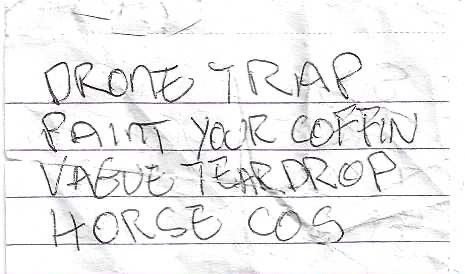 DRONE TRAP
PAINT YOUR COFFIN
VAGUE TEARDROP
HORSE COS